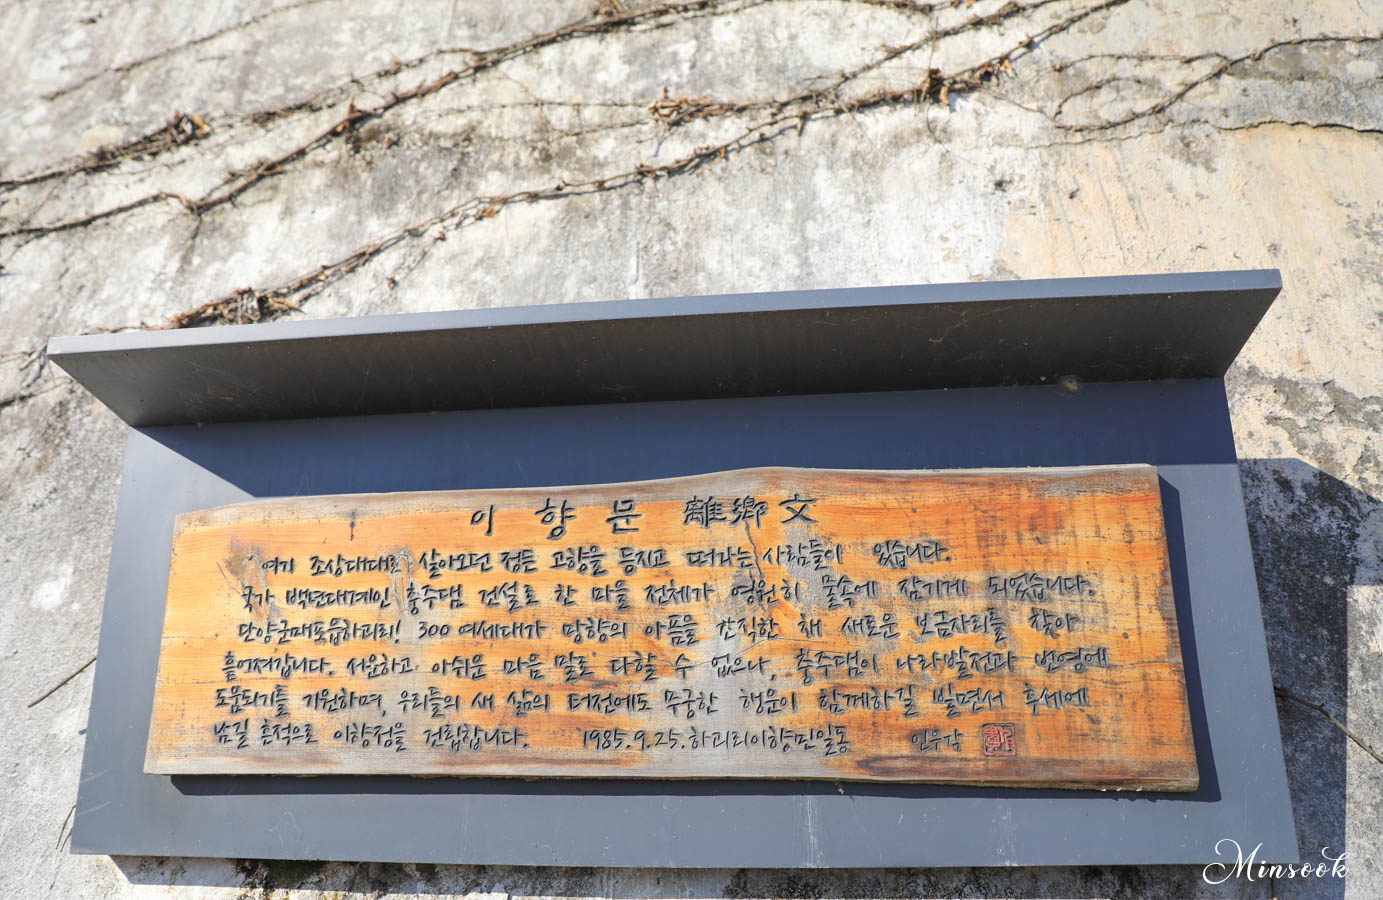 이 향 문 離鄕文
"여기 조상대대로 살아오던 정든 고향을 등지고 떠나는 사람들이 있습니다.
국가 백년대계인 충주댐 건설로 한 마을 전체가 영원히 물속에 잠기게 되었습니다.
단양군매포읍하괴리! 300여세대가 망향의 아픔을 간직한 채 새로운 보금자리를 찾아
흩어져갑니다. 서운하고 아쉬운 마음 말로 다할 수 없으나, 충주댐이 나라발전과 번영에
도움되기를 기원하며, 우리들의 새 삶의 터전에도 무궁한 행운이 함께하길 빌면서 후세에
남길 흔적으로 이향정을 건립합니다. 1985.9.25.하괴리이향민일동
Minsook